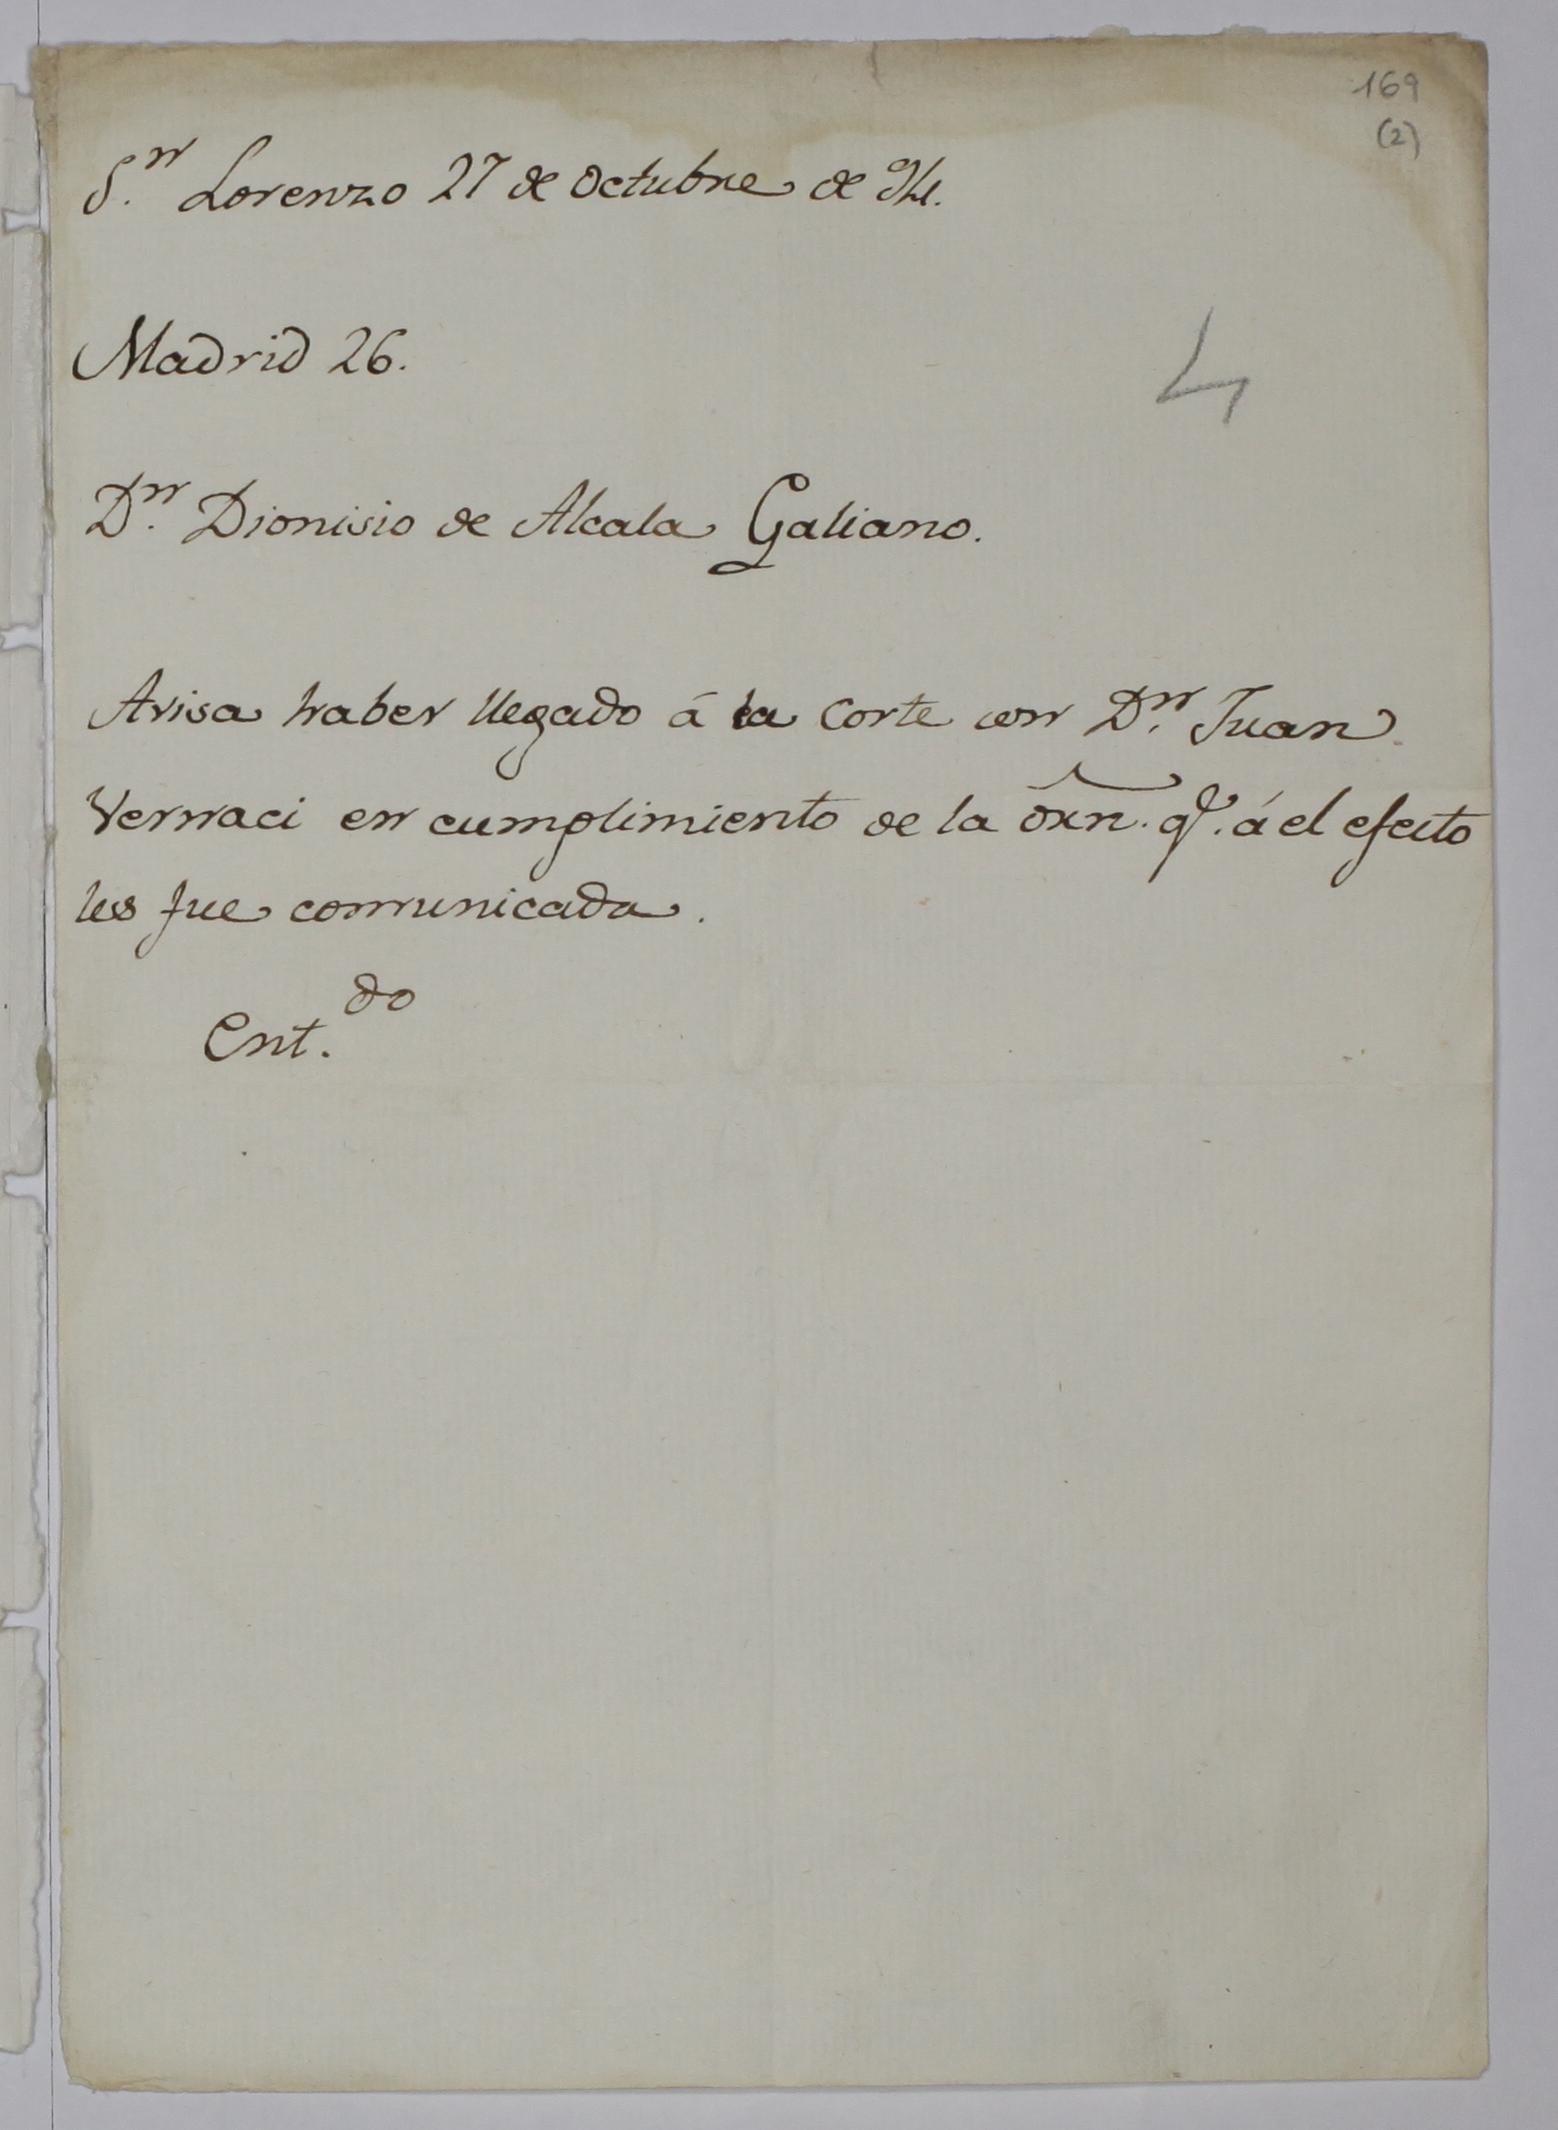 169
(2)
S.n Lorenzo 27 de Octubre de 94.
Madrid 26.
4
D.n Dionisio de Alcala Galiano.
Avisa haber llegado á la Corte con D.n Juan
Vernaci en cumplimiento de la orn. q.e á el efecto
les fue comunicada.
Ent.do